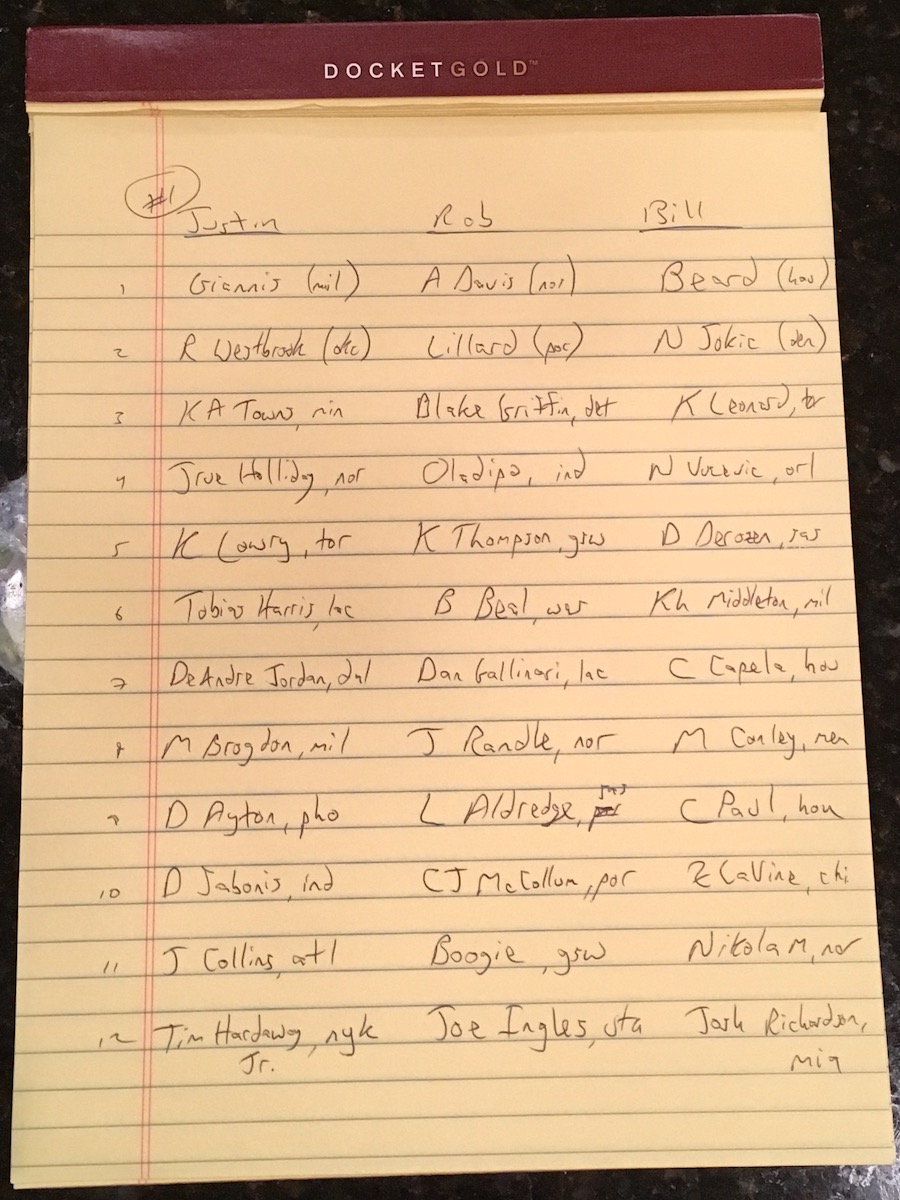 DOCKETGOLD™
#1
Justin Rob Bill
1 Giannis (mil) A Davis (nor) Beard (hou)
2 R Westbrook (okc) Lillard (por) N Jokic (den)
3 KA Towns, min Blake Griffin, det K Leonard, tor
4 Jrue Holliday, nor Oladipo, ind N Vucevic, orl
5 K Lowry, tor K Thompson, gsw D Derozen, sas
6 Tobias Harris, lac B Beal, was Kh Middleton, mil
7 DeAndre Jordan, dal Dan Gallinari, lac C Capela, hou
8 M Brogdon, mil J Randle, nor M Conley, mem
9 D Ayton, pho L Aldredge, sas C Paul, hou
10 D Sabonis, ind CJ McCollum, por Z LaVine, chi
11 J Collins, atl Boogie, gsw Nikola M, nor
12 Tim Hardaway, nyk Joe Ingles, uta Josh Richardson,
Jr. mia